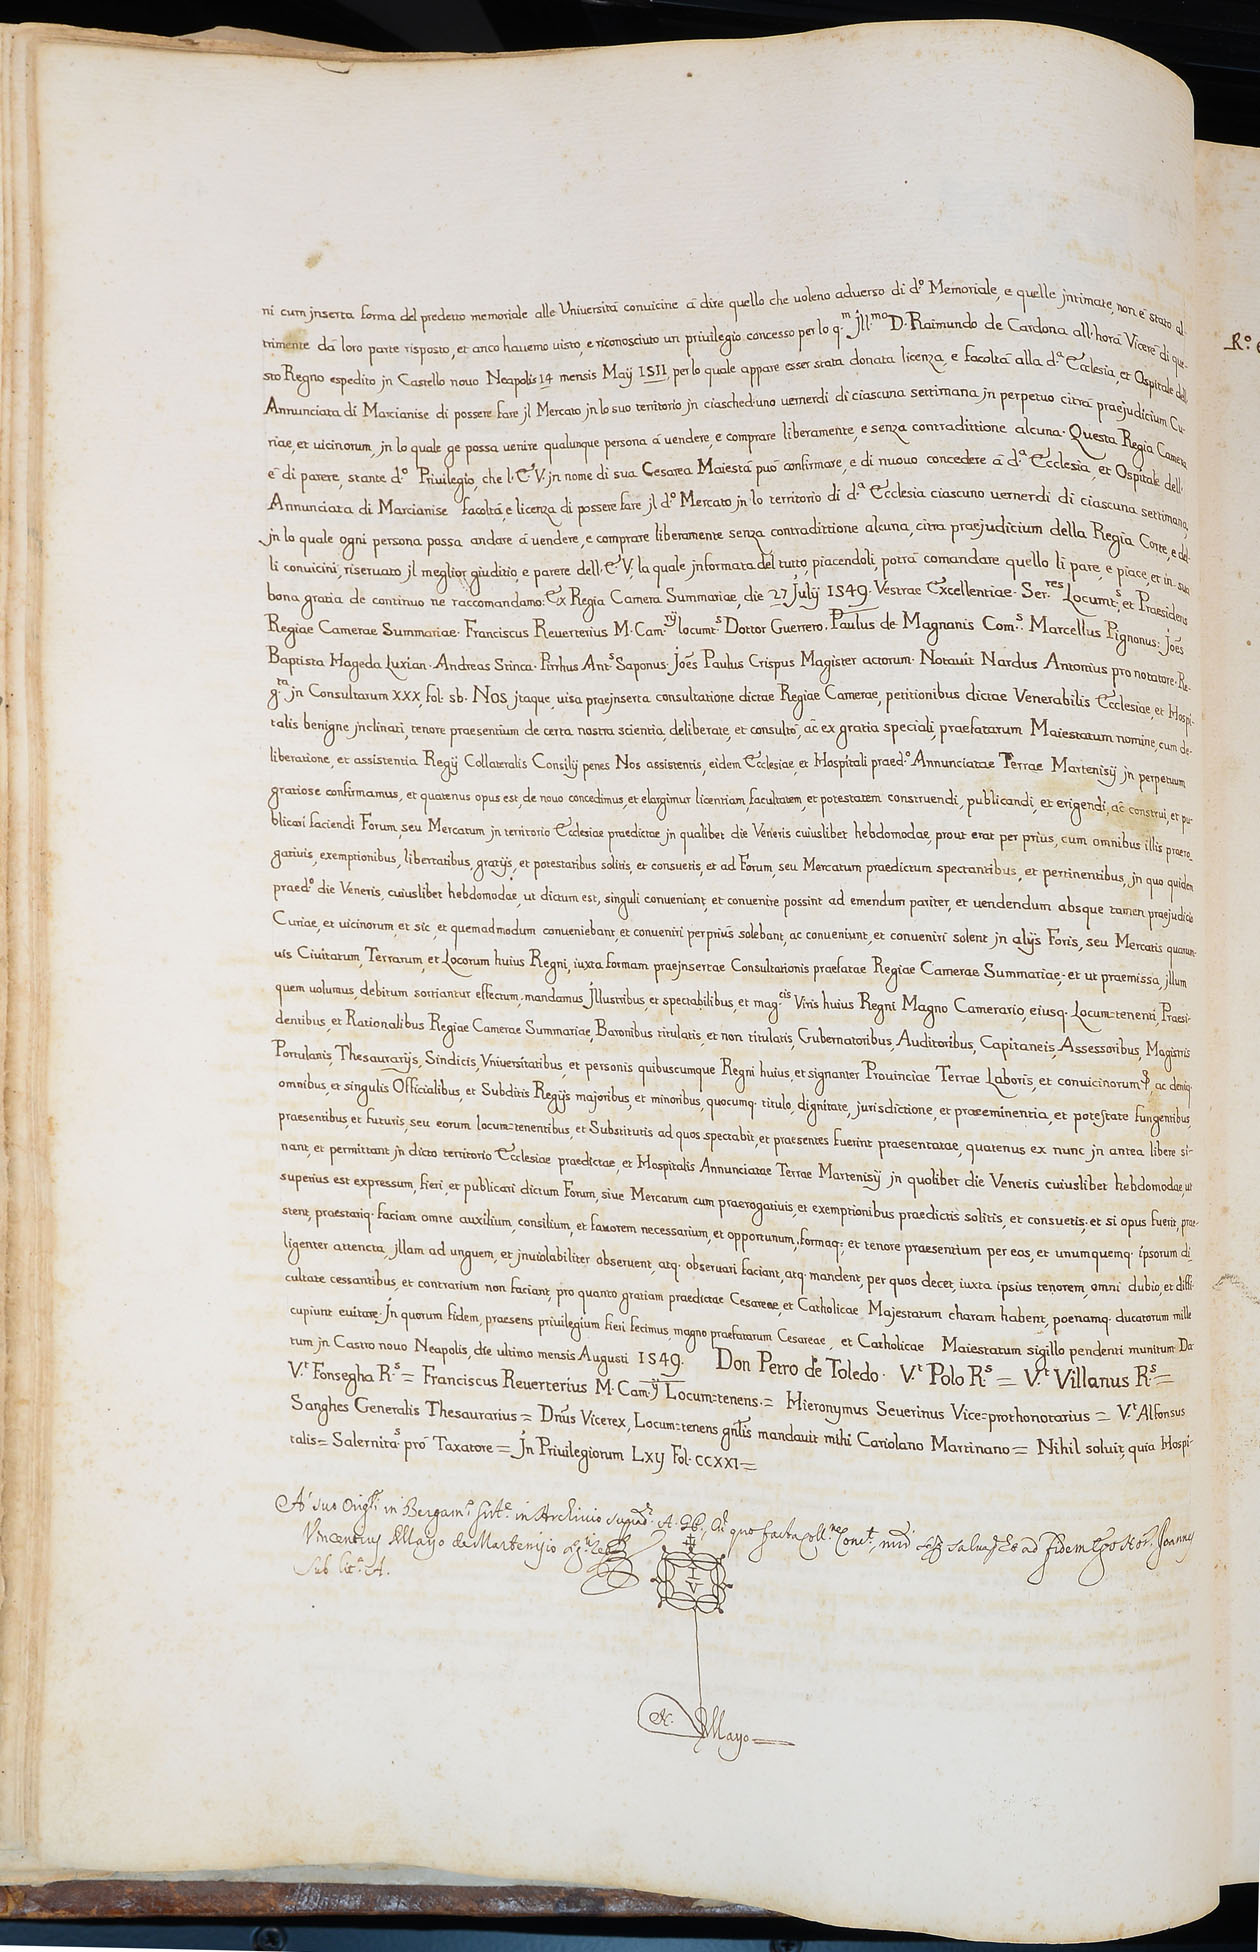 ni cum jnserta forma del predetto memoriale alle Universitá convicine á dire quello che voleno adverso di d.º Memoriale, e quelle jntimate, non é stato al-
trimente dá loro parte risposto, et anco havemo visto, e riconosciuto un privilegio concesso per lo q.m jll.mo D. Raimundo de Cardona all'horá Viceré di que-
sto Regno espedito jn Castello novo Neapolis 14 mensis Maÿ 1511, per lo quale appare esser stata donata licenza, e facoltá alla d.ª Ecclesia, et Ospitale dell'
Annunciata di Marcianise di possere fare jl Mercato jn lo suo territorio jn ciasched'uno uernerdi di ciascuna settimana jn perpetuo citrá praejudicium Cu-
riae, et uicinorum, jn lo quale ge possa uenire qualunque persona á uendere, e comprare liberamente, e senza contradittione alcuna. Questa Regia Camera
é di parere, stante d.º Privilegio, che l'E.V. jn nome di sua Cesarea Maiestá puó confirmare, e di nuovo concedere á d.ª Ecclesia, et Ospitale dell'
Annunciata di Marcianise facoltá, e licenza di possere fare jl d.º Mercato jn lo territorio di d.ª Ecclesia ciascuno uernerdi di ciascuna settimana,
jn lo quale ogni persona possa andare á uendere, e comprare liberamente senza contradittione alcuna, citra praejudicium della Regia Corte, e del-
li convicini, riservato jl meglior giuditio, e parere dell'E.V. la quale jnformata del tutto, piacendoli, potrá comandare quello li pare, e piace, et in sua
bona gratia de continuo ne raccomandamo: Ex Regia Camera Summariae, die 27 julÿ 1549. Vestrae Excellentiae. Ser.res Locumt.s, et Praesidens
Regiae Camerae Summariae. Franciscus Reuerterius M. Cam.rÿ locumt.s Dottor Guerrero. Paulus de Magnanis Com.s Marcellus Pignonus: Joẽs
Baptista Hageda Luxian. Andreas Stinca. Pirrhus Ant.s Saponus. Joẽs Paulus Crispus Magister actorum. Notavit Nardus Antonius pro notatore. Re-
g.ta jn Consultarum XXX fol. sb. Nos jtaque, uisa praejnserta consultatione dictae Regiae Camerae, petitionibus dictae Venerabilis Ecclesiae, et Hospi-
talis benigne jnclinati, tenore praesentium de certa nostra scientia, deliberate, et consultó, ac̃ ex gratia speciali, praefatarum Maiestatum nomine, cum de-
liberatione, et assistentia Regÿ Collateralis Consilÿ penes Nos assistentis, eidem Ecclesiae, et Hospitali praed.º Annunciatae Terrae Martenisÿ jn perpetuum
gratiose confirmamus, et quatenus opus est, de novo concedimus, et elargimur licentiam, facultatem, et potestatem construendi, publicandi, et erigendi, ac̃ construi, et pu-
blicari faciendi Forum, seu Mercatum jn territorio Ecclesiae praedictae jn qualibet die Veneris cuiuslibet hebdomodae, prout erat per prius, cum omnibus illis praero-
gatiuis, exemptionibus, libertatibus, gratÿs, et potestatibus solitis, et consuetis, et ad Forum, seu Mercatum praedictum spectantibus, et pertinentibus, jn quo quidem
praed.º die Veneris, cuiuslibet hebdomodae, ut dictum est, singuli conveniant, et convenire possint ad emendum pariter, et uendendum absque tamen praejudicio
Curiae, et uicinorum, et sic, et quemadmodum conveniebant, et conveniri per priús solebant, ac conveniunt, et conveniri solent jn alÿs Foris, seu Mercatis quarum-
uis Civitatum, Terrarum, et Locorum huius Regni, iuxta formam praejnsertae Consultationis praefatae Regiae Camerae Summariae; et ut praemissa, jllum
quem uolumus, debitum sortiantur effectum; mandamus jllustribus, et spectabilibus, et mag.cis Viris huius Regni Magno Camerario, eiusq. Locum=tenenti, Praesi-
dentibus, et Rationalibus Regiae Camerae Summariae, Baronibus titulatis, et non titulatis, Gubernatoribus, Auditoribus, Capitaneis, Assessoribus, Magistris
Portulanis, Thesaurarÿs, Sindicis, Vniversitatibus, et personis quibuscumque Regni huius, et signanter Prouinciae Terrae Laboris, et convicinorum, ac deniq.
omnibus, et singulis Officialibus, et Subditis Regÿs majoribus, et minoribus, quocumq. titulo, dignitate, jurisdictione, et praeeminentia, et potestate fungentibus,
praesentibus, et futuris, seu eorum locum=tenentibus, et Substitutis ad quos spectabit, et praesentes fuerint praesentatae, quatenus ex nunc jn antea libere si-
nant, et permittant jn dicto territorio Ecclesiae praedictae, et Hospitalis Annunciatae Terrae Martenisÿ jn quolibet die Veneris cuiuslibet hebdomodae, ut
superius est expressum, fieri, et publicari dictum Forum, siue Mercatum cum praerogatiuis, et exemptionibus praedictis solitis, et consuetis; et si opus fuerit, prae-
stent, praestariq. faciant omne auxilium, consilium, et fauorem necessarium, et opportunum, formaq; et tenore praesentium per eas, et unumquemq. ipsorum di-
ligenter attencta, jllam ad unguem, et jnuiolabiliter obseruent, atq. obseruari faciant, atq. mandent, per quos decet, iuxta ipsius tenorem, omni dubio, et diffi-
cultate cessantibus, et contrarium non faciant, pro quanto gratiam praedictae Cesareae, et Catholicae Majestatum charam habent, poenamq. ducatorum mille
cupiunt euitare. Jn quorum fidem, praesens priuilegium fieri fecimus, magno praefatarum Cesareae, et Catholicae Maiestatum sigillo pendenti munitum. Da-
tum jn Castro novo Neapolis, die ultimo mensis Augusti 1549. Don Perro de Toledo. V.t Polo R.s = V.t Villanus R.s =
V.t Fonsegha R.s = Franciscus Reuerterius M. Cam.ÿ Locum=tenens. = Hieronymus Seuerinus Vice=prothonotarius = V.t Alfonsus
Sanghes Generalis Thesaurarius = Dnũs Vicerex, Locum=tenens gñlis mandauit mihi Cariolano Martinano = Nihil soluit, quia Hospi-
talis = Salernita.s pró Taxatore = Jn Privilegiorum LXIJ Fol. CCXXI =
A' suo Orig.li in Bergam.º in Archivio quo facta coll.ne salua ad fidem Ego Not. Joannes
Vincentius Mayo de Martenisio
Sub lit.ª A.
I
V
N. Mayo
R.º